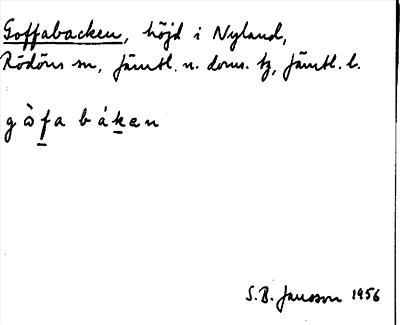 Goffabacken, höjd i Nyland,
Rödöns sn, Jämtl. n. doms. tg, Jämtl. l.
gɷ̀fa bákan
S. B. Jansson 1956